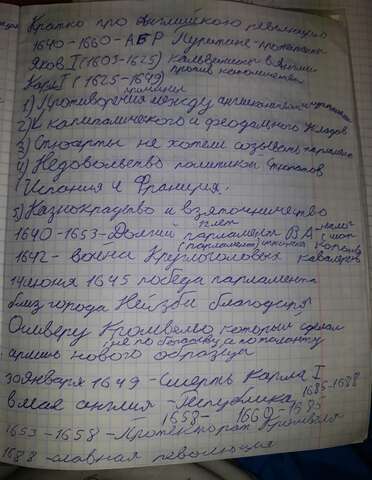 Кратко про Английскую революцию
1640-1660-АБР Пуритане-протестанты
Яков I (1603-1625) Кальвинизм в Англии
Карл I (1625-1649) против католичества
Причины
1) Противоречия между англиканами и пуританами
2) капиталического и феодального укладов
3) Стюарты не хотели созывать парламент
4) Недовольство политикой Стюартов
Испания и Франция.
5) Казнокрадство и взяточничество
12 лет
1640-1653-Долгий парламент ВА-
(парламент)
1642- война Круглоголовых кавалеров
14 июня 1645 победа парламента
близ города Нейзби благодаря
Оливеру Кромвелю, который сделал
не по богатству, а по таланту
армию нового образца
30 января 1649-Смерть Карла I
1685-1688
в мае англия-Республика
1658- 1660-1685
1653-1658-Протекторат Кромвеля
1688-славная революция